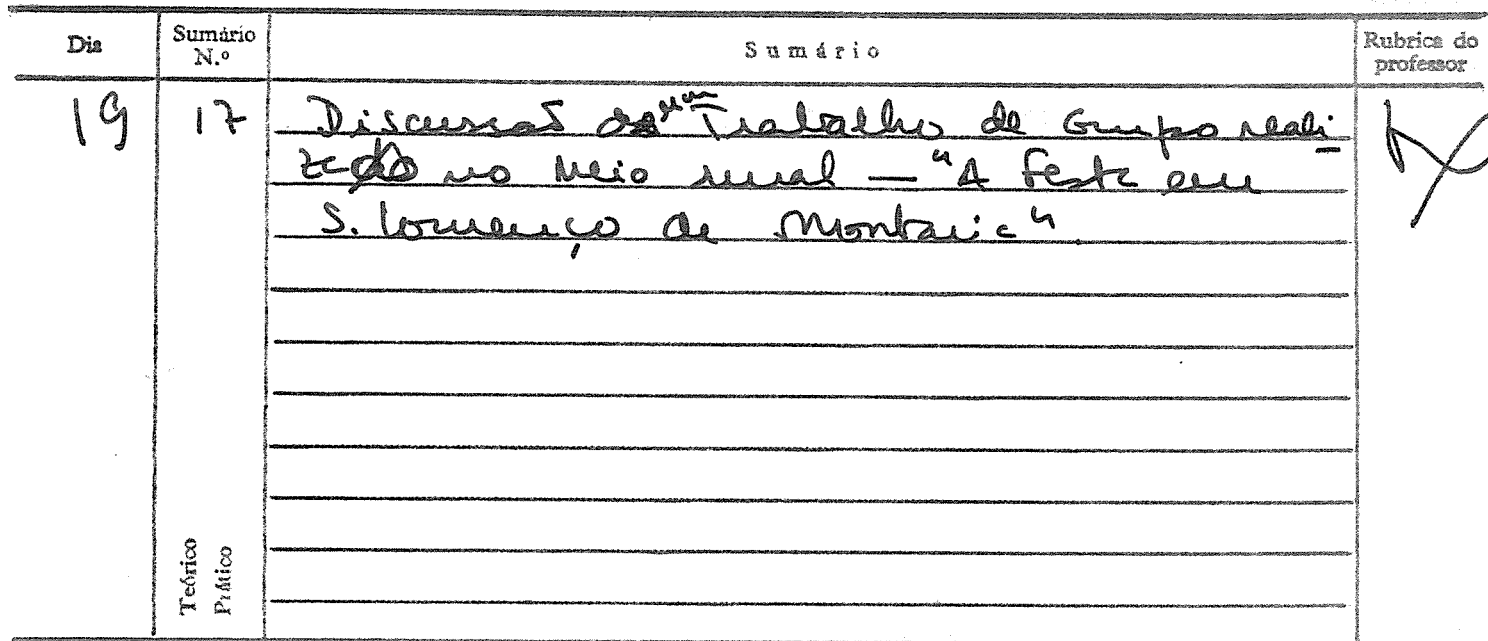 Dia
Sumário N.º
Sumário
Rubrica do professor
19
17
Discussão de um Trabalho de Grupo reali
zado no Meio rural — "A Festa em
S. Lourenço da Montaria"
Teórico
Prático